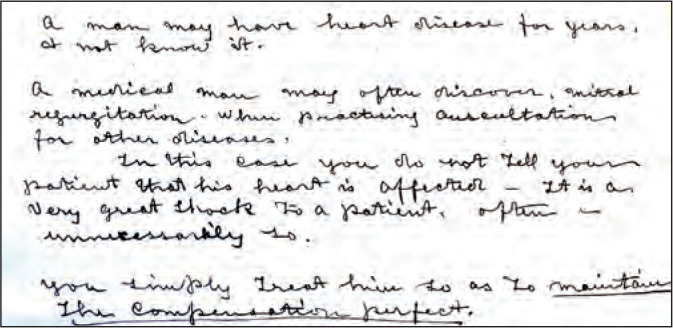 A man may have heart disease for years,
& not know it.
A medical man may often discover, mitral
regurgitation. when practising auscultation
for other diseases.
In this case you do not tell your
patient that his heart is affected – It is a
very great shock to a patient, often –
unnecessarily so.
you simply treat him so as to maintain
the compensation perfect.